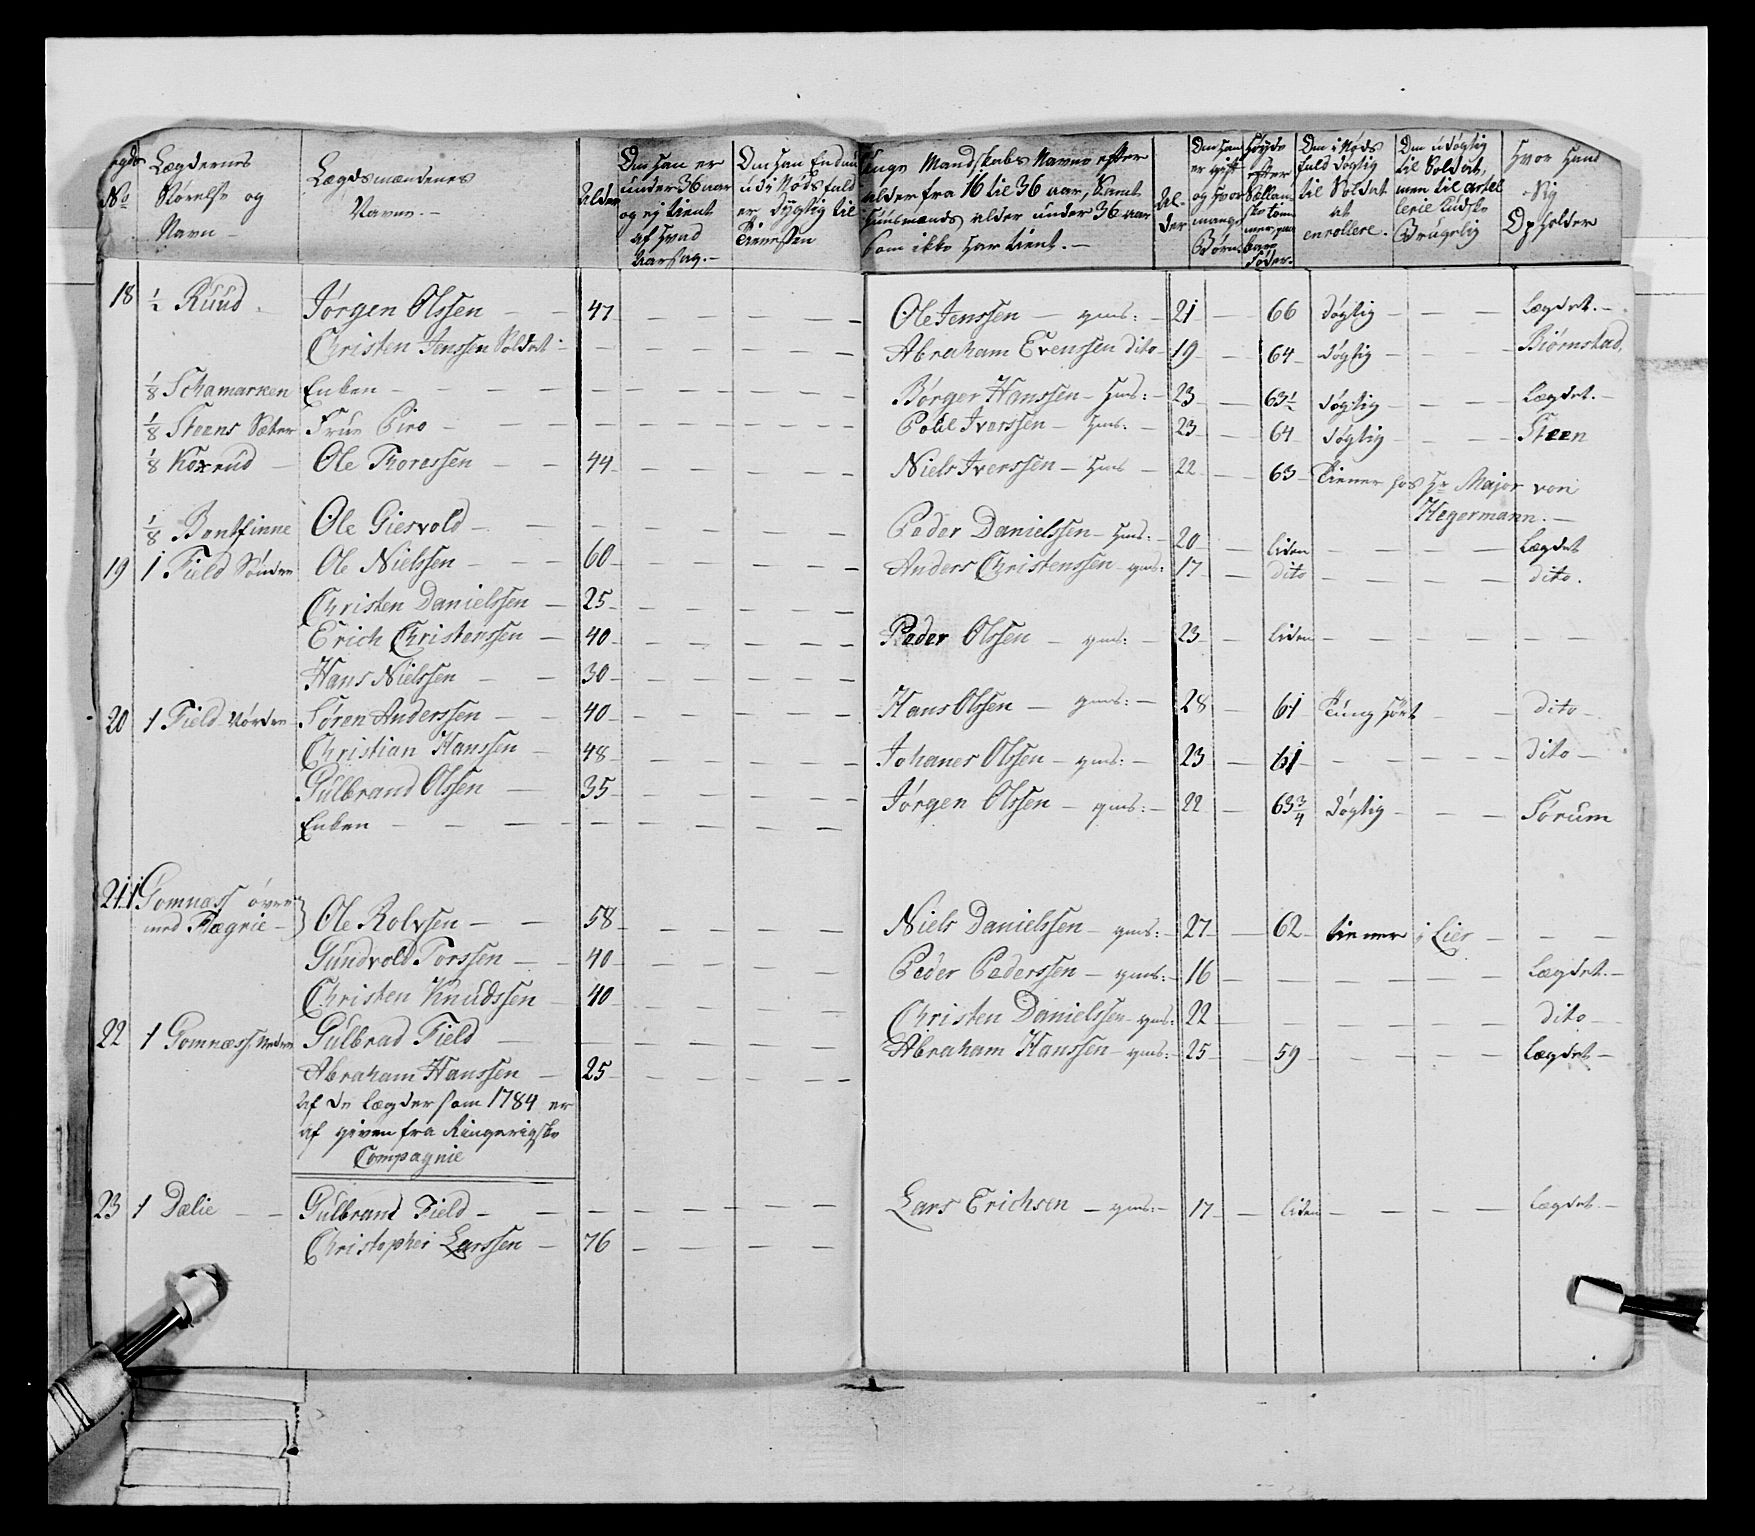 Lægdernes Størelse og Navn –
No
Lægdsmændenes Navne. –
Alder
Om Han er under 36 aar og ej tient af Hvad Aarsag. –
Om Han Endnu udi Nøds fald er dygtig til Tienesten
Unge Mandskabs Navne efter alder fra 16 til 36 aar, samt Huusmænds alder under 36 aar som ikke Har tient. –
Al-der
Om Han er gift og Hvor mange Børn
Høyde efter
Om i Nøds fald dygtig til Soldat at enrollere.
Om udygtig til Soldat, men til artellerie Kudsk Brugelig
Hvor Hand Sig Opholder
18 ½ Ruud Jørgen Olssen – 47 – Ole Jenssen – gms: – 21 – 66 dygtig – – Lægdet. –
Christen Jenssen Soldat – Abraham Evenssen dito – 19 – 64 – dygtig – – Biørnstad
⅛ Schamarken Enken – – Børger Hanssen – Hms: – 23 – 63½ dygtig – – Lægdet. –
⅛ Steens Sæter Frue – – Poul Iverssen – Hms. – 23 – 64 dygtig – – Steen
⅛ Koxrud – Ole Thoressen – 44 – Niels Iverssen – Hms – 22 – 63 – Tiener hos Hr Major von
Hegermann. –
⅛ Bentfinne Ole Giesvold – – Peder Danielssen – Hms: – 20 – liden – – Lægdet
19 1 Field Søndre Ole Nielssen – 60 – Anders Christenssen gms: 17 – dito – – dito.
Christen Danielssen – 25 –
Erich Christenssen – 40 – Peder Olssen – gms: – 23 – liden – –
Hans Nielssen – 30 –
20 1 Field Nørdre Søren Anderssen – 40 – Hans Olssen – gms: – 28 – 61 Tung hørt – dito –
Christian Hanssen – 48 – Johanes Olssen – gms: – 23 – 61 – – dito –
Gulbrand Olssen – 35 – Jørgen Olssen – gms: – 22 – 63¾ dygtig – – Sørum
Enken – –
21 1 Gomnæss øvre
med Fleagrie – Ole Rolvsen – 58 – Niels Danielssen – gms: – 27 – 62 – tiener i Lier – –
Gundvold Torssen – 40 – Peder Pederssen – gms: – 16 – – Lægdet. –
Christen Knudssen – 40 – Christen Danielssen – gms: 22 – – dito –
22 1 Gomnæss Nedre Gulbrad Field – – Abraham Hanssen – gms: – 25 – 59 – – Lægdet –
Abraham Hanssen – 25 –
af de Lægder som 1784 er
af given fra Ringerigske
Compagnie
23 1 Dælie – – Gulbrand Field – – Lars Erichsen – gms: – 17 – liden – – Lægdet. –
Christopher Larssen – 76 –